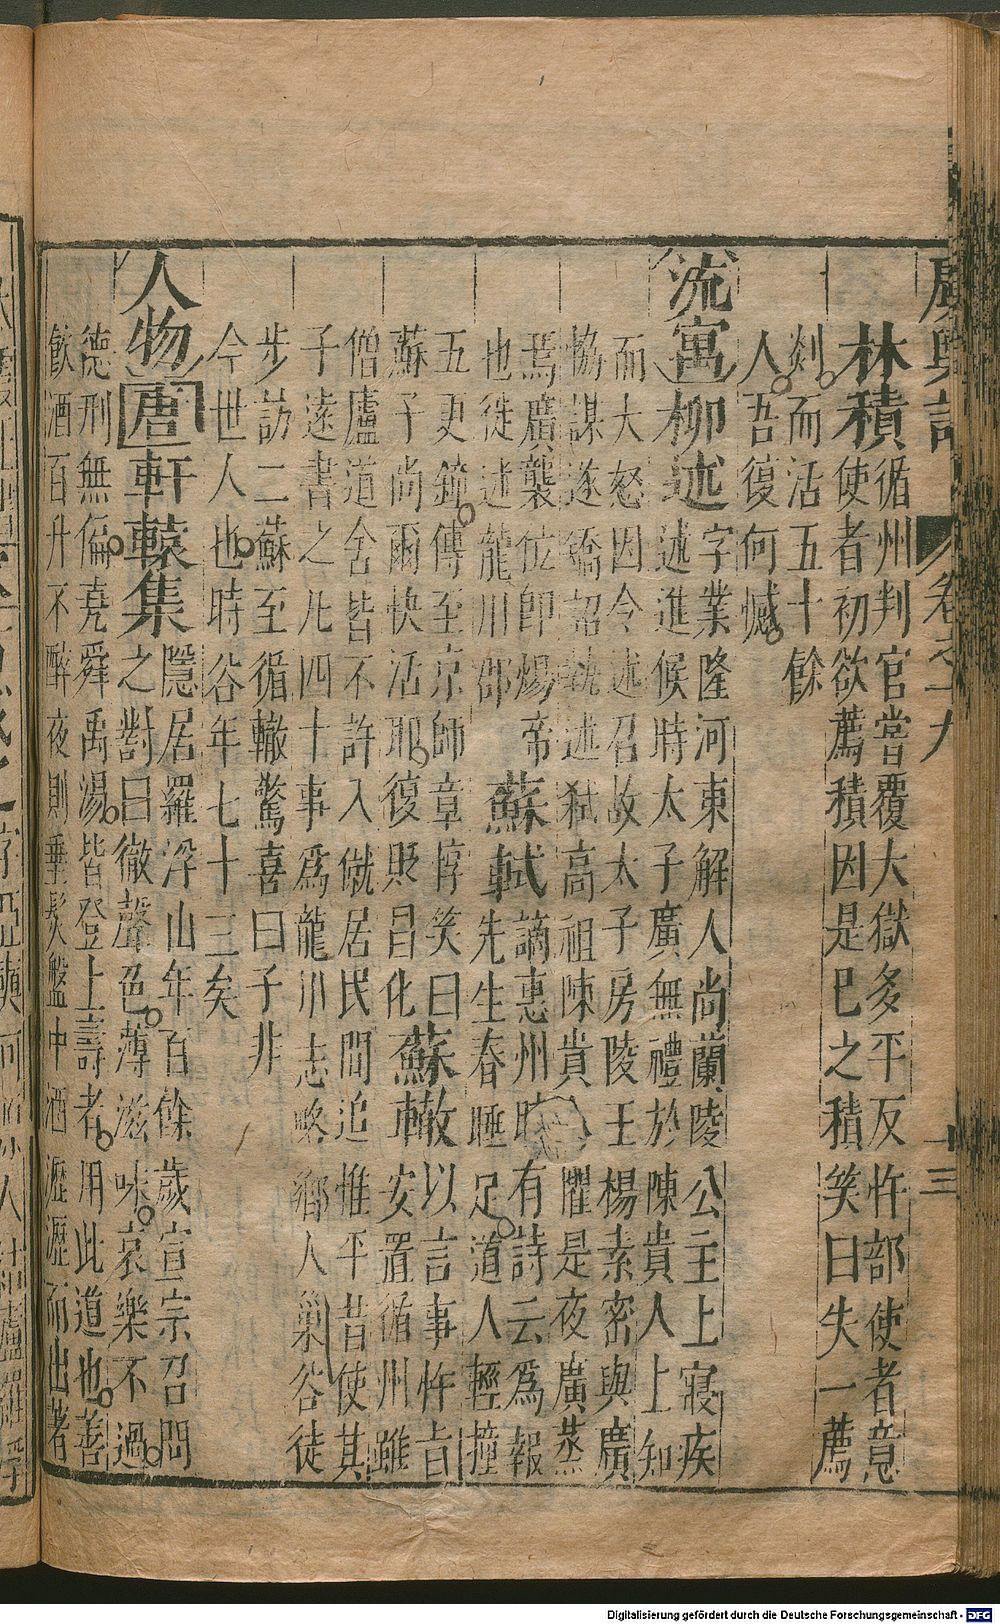 廣輿記 卷之十九 十三
林積 循州判官當覆大獄多平反忤部使者意
使者初欲薦積因是已之積笑曰失一薦
剡而活五十餘
人吾復何憾
流寓 柳述 字業隆河東解人尚蘭陵公主上寢疾
述進候時太子廣無禮於陳貴人上知
而大怒因令述召故太子房陵王楊素密與廣
協謀遂矯詔執述弒高祖陳貴人懼是夜廣蒸
焉廣襲位即煬帝 蘇軾 謫惠州時有詩云為報
也徙述龍川郡 先生春睡足道人輕撞
五更鐘傳至京師章惇笑曰 蘇轍 以言事忤旨
蘇子尚爾快活耶復貶昌化 安置循州雖
僧廬道舍皆不許入僦居民間追惟平昔使其
子遠書之凡四十事為龍川志略鄉人巢谷徒
步訪二蘇至循轍驚喜曰子非
今世人也時谷年七十三矣
人物 唐 軒轅集 隱居羅浮山年百餘歲宣宗召問
之對曰徹聲色薄滋味哀樂不過
德刑無偏堯舜禹湯皆登上壽者用此道也善
飲酒百升不醉夜則垂髮盤中酒瀝瀝而出著
Digitalisierung gefördert durch die Deutsche Forschungsgemeinschaft - DFG